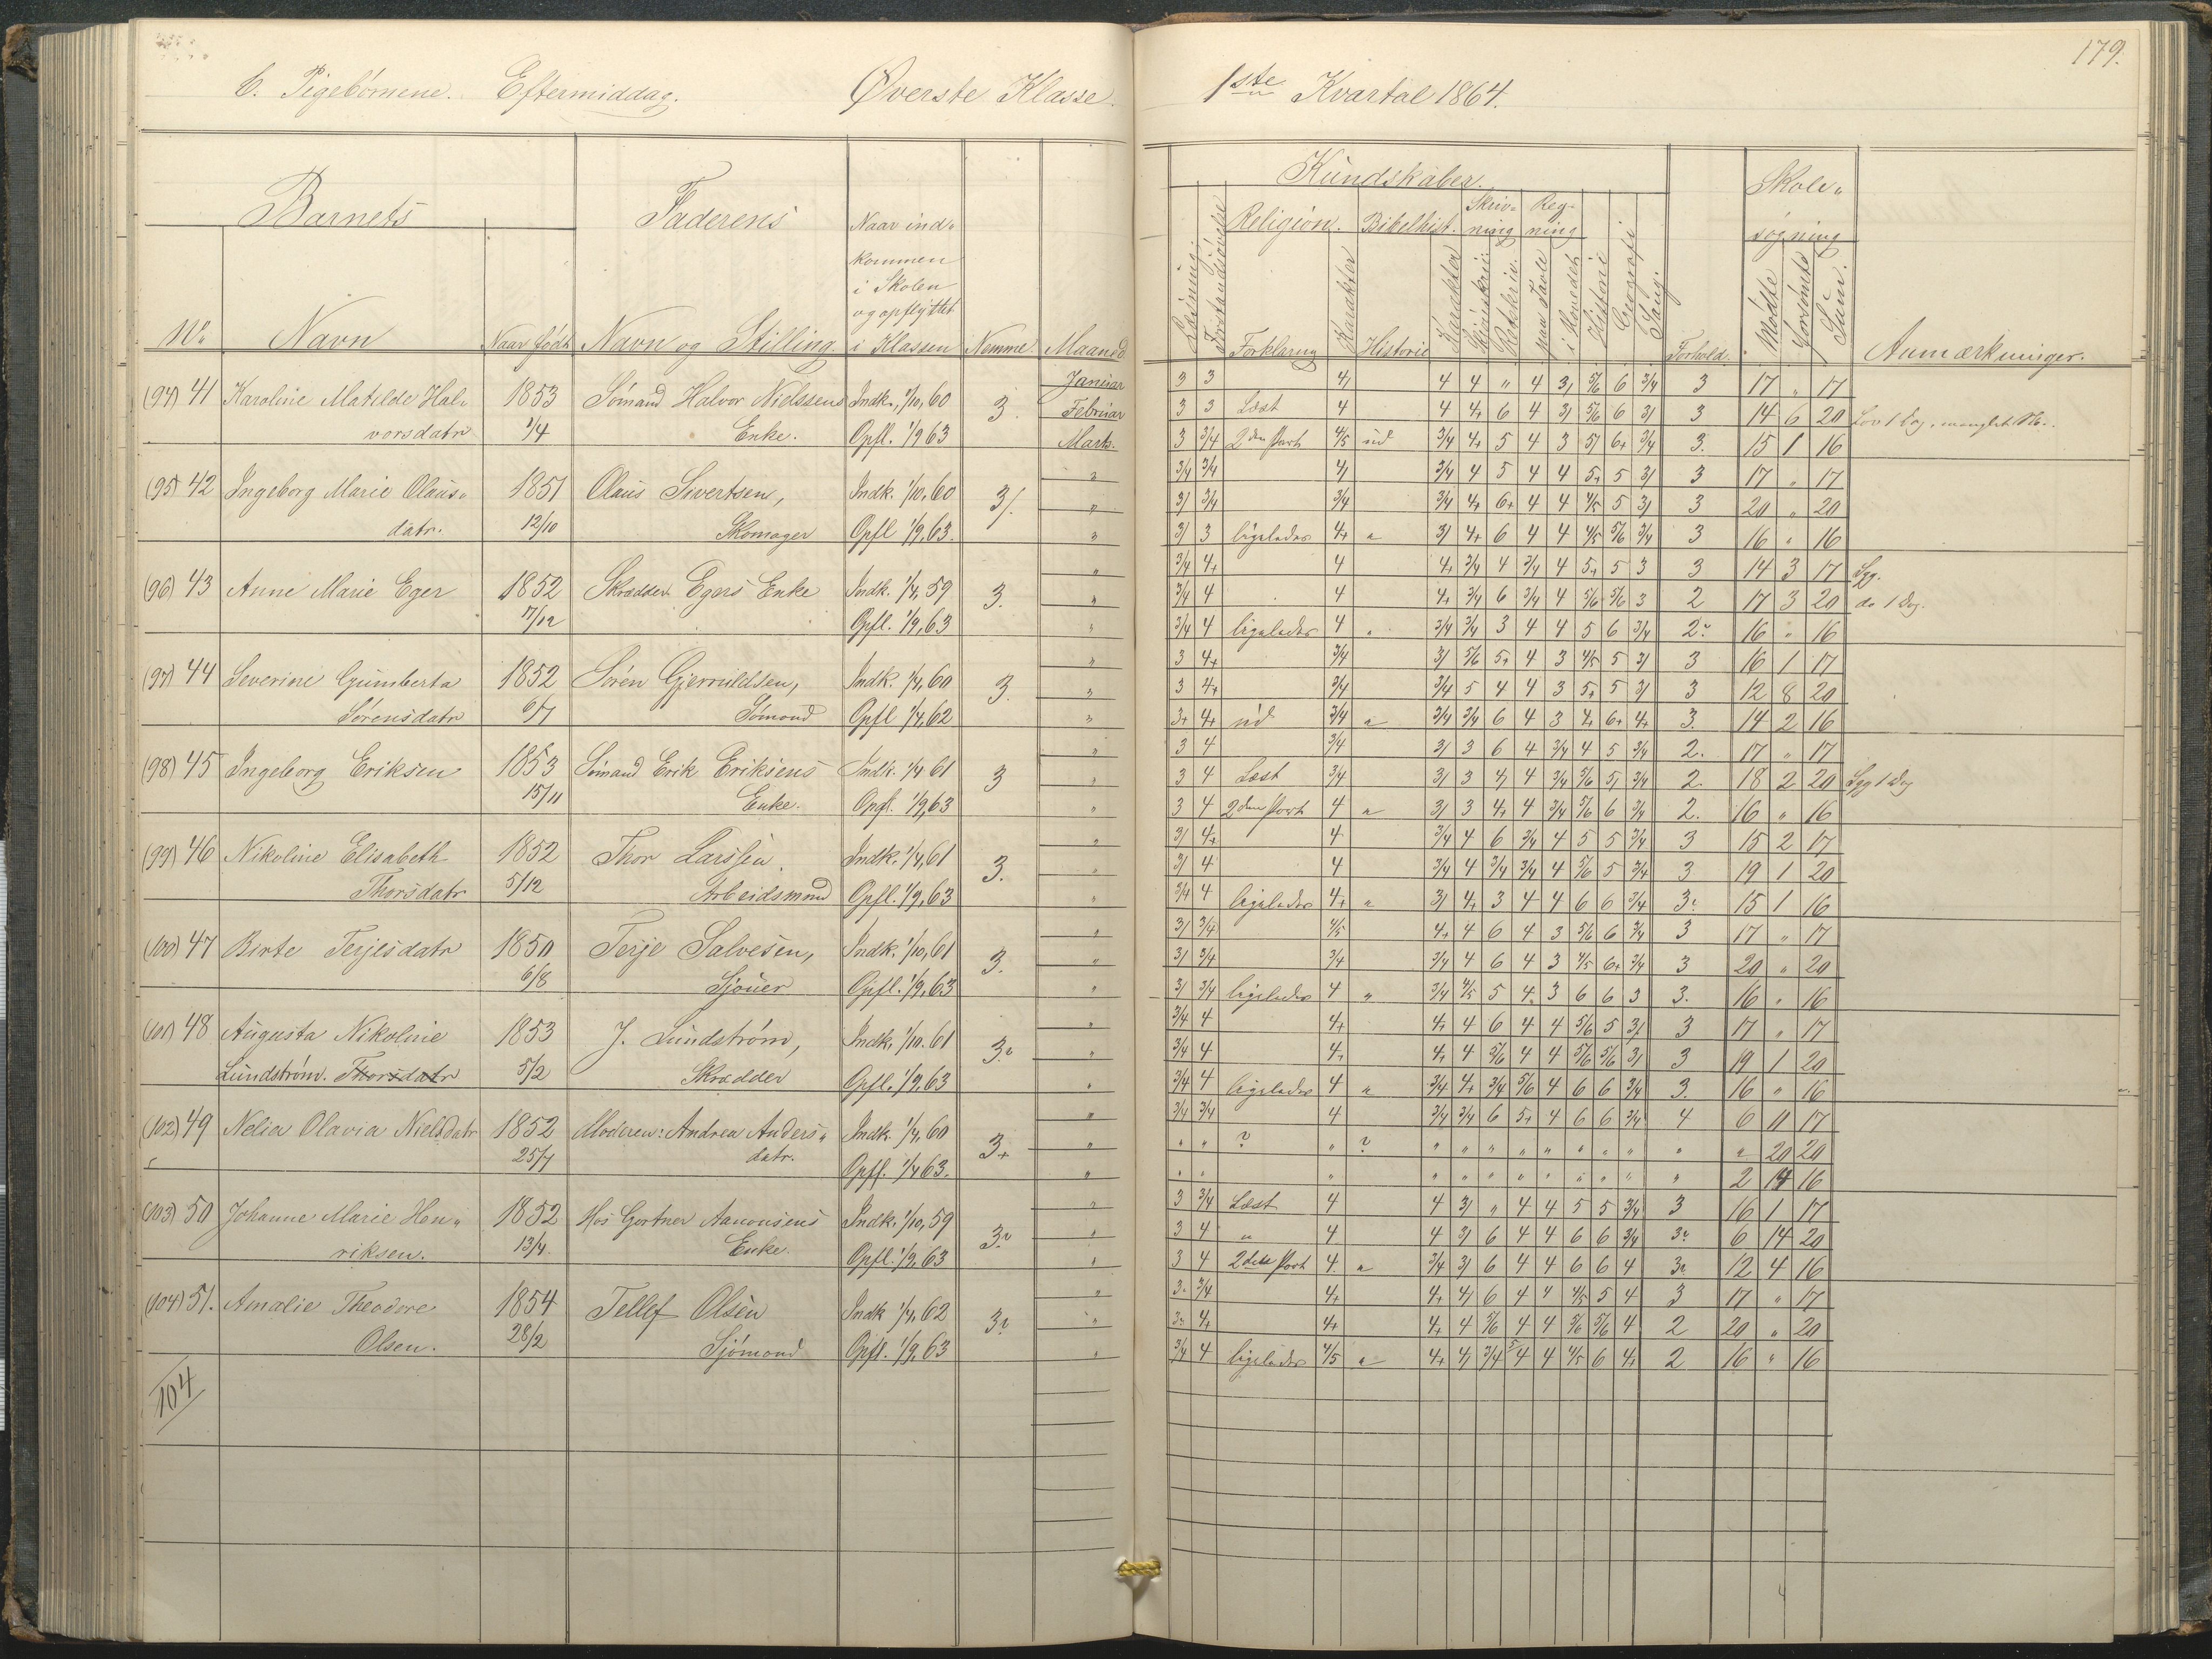 179.
C. Pigebørnene. Eftermiddag. Øverste Klasse. 1ste Kvartal 1864.
Barnets Faderens Naar ind-
kommen
i Skolen
og opflyttet
i Klassen
No Navn Naar født Navn og Stilling Nemme. Maaned
Kundskaber. Skole-
søgning
Religion. Bibelhist. Skriv-
ning Reg-
ning
Forklaring Karakter Historie Karakter Retskriv. paa Tavle i Hovedet Historie Geografi Sang Forhold. Mødte Forsømte Sum. Anmærkninger.
(94) 41 Karoline Matilde Hal- 1853 Sømand Halvor Nielssens Indk. 1/10, 60 3. Januar
vorsdatr 1/4 Enke. Opfl. 1/9 63 Februar
Marts.
3 3 4/ 4 4 " 4 3/ 5/6 6 3/4 3 17 " 17
3 3 Læst 4 4 4+ 6 4 3/ 5/6 6 3/ 3 14 6 20
3 3/4 2den Part 4/5 ud 3/4 4+ 5 4 3 5/ 6+ 3/4 3. 15 1 16
(95) 42 Ingeborg Marie Olaus- 1851 Olaus Sivertsen, Indk. 1/10, 60 3/.
datr. 12/10 Skomager Opfl 1/9, 63.
3/4 3/4 4/ 3/4 4 5 4 4 5+ 5 3/ 3 17 " 17
3/ 3/4 3/4 3/4 4+ 6+ 4 4 4/5 5 3/ 3 20 " 20
3/ 3 ligeledes 4+ " 3/ 4+ 6 4 4 4/5 5/6 3/4 3 16 " 16
(96) 43 Anne Marie Eger 1852 Skrædder Egers Enke Indk. 1/4, 59 3.
17/12 Opfl. 1/9, 63
3/4 4+ 4 4+ 3/4 4 3/4 4 5+ 5 3 3 14 3 17 Syg.
3/4 4 4 4+ 3/4 6 3/4 4 5/6 5/6 3 2 17 3 20 do 1 Dag.
3/4 4 ligeledes 4 " 3/4 3/4 3 4 4 5 6 3/4 2? 16 " 16
(97) 44 Severine Gumberta 1852 Søren Gjerruldsen, Indk. 1/4, 60 3.
Sørensdatr 6/7 Sømand Opfl 1/4, 62
3 4+ 3/4 3/ 5/6 5+ 4 3 4/5 5 3/ 3 16 1 17
3 4+ 3/4 3/4 5 4 4 3 5+ 5 3/ 3 12 8 20
3+ 4+ ud 3/4 " 3/4 3/4 6 4 3 4+ 6+ 4+ 3. 14 2 16
(98) 45 Ingeborg Eriksen 1853 Sømand Erik Eriksens Indk. 1/4 61 3
15/11 Enke. Opfl. 1/9, 63
3 4 3/4 3/ 3 6 4 3/4 4 5 3/4 2. 17 " 17
3 4 Læst 3/4 3/ 3 4/ 4 3/4 5/6 5/ 3/4 2. 18 2 20 Syg 1 Dag
3 4 2den Part 4 " 3/ 3 4+ 4 3/4 5/6 6 3/4 2. 16 " 16
(99) 46 Nikoline Elisabeth 1852 Thor Larssen Indk. 1/4, 61 3.
Thorsdatr 5/12 Arbeidsmand Opfl. 1/9, 63
3/ 4+ 4 3/4 4 6 3/4 4 5 5 3/4 3 15 2 17
3/ 4 4 3/4 4 3/4 3/4 4 5/6 5 3/4 3 19 1 20
3/4 4 ligeledes 4+ " 3/ 4+ 3 4 4 6 6 3/4 3? 15 1 16
(100) 47 Birte Terjesdatr 1850 Terje Salvesen, Indk. 1/10, 61 3.
6/8 Sjouer Opfl. 1/9, 63
3/ 3/4 4/5 4+ 4 6 4 3 5/6 6 3/4 3 17 " 17
3/ 3/4 3/4 3/4 4 6 4 3 4/5 6+ 3/4 3 20 " 20
3/ 3/4 ligeledes 4 " 3/4 4/5 5 4. 3 6 6 3 3. 16 " 16
(101) 48 Augusta Nikoline 1853 J. Lundstrøm, Indk. 1/10. 61 3?
Lundstrøm. Thorsdatr 5/2 Skrædder Opfl. 1/9, 63
3/4 4 4+ 4+ 4 6 4 4 5/6 5 3/ 3 17 " 17
3/4 4 4+ 4+ 4 5/6 4 4 5/6 5/6 3/ 3 19 1 20
3/4 4 ligeledes 4 " 3/4 4+ 3/4 5/6 4 6 6 3/4 3. 16 " 16
(102) 49 Nelia Olavia Nielsdatr 1852 Moderen: Andrea Anders- Indk. 1/4, 60 3+
25/7 datr. Opfl. 1/4 63.
3/4 3/4 4 3/4 3/4 6 5+ 4 6 6 3/4 4 6 11 17
" " ? " ? " " " " " " " " " " 20 20
" " " " " " " " " " " " 2 14 16
(103) 50 Johanne Marie Hen- 1852 Hos Gartner Aanonsens Indk. 1/10, 59 3?
riksen. 13/4. Enke. Opfl. 1/9, 63
3 3/4 Læst 4 4 3/ " 4 4 5 5 3/4 3 16 1 17
3 4 " 4 4 3/ 6 4 4 6 6 3/4 3? 6 14 20
3 4 2den Part 4 " 3/4 3/ 6 4 4 6 6 4 3? 12 4 16
(104) 51. Amalie Theodore 1854 Tellef Olsen Indk 1/4, 62 3?
Olsen. 28/2 Sjømand Opfl. 1/9, 63
3. 3/4 4+ 4+ 4/ 6 4 4 4/5 5 4 3 17 " 17
3? 4+ 4+ 4+ 4 5/6 4 4 5/6 5/6 4 2 20 " 20
3/4 4 ligeledes 4/5 " 4+ 4/ 3/4 4 4 4/5 6 4+ 2 16 " 16
104